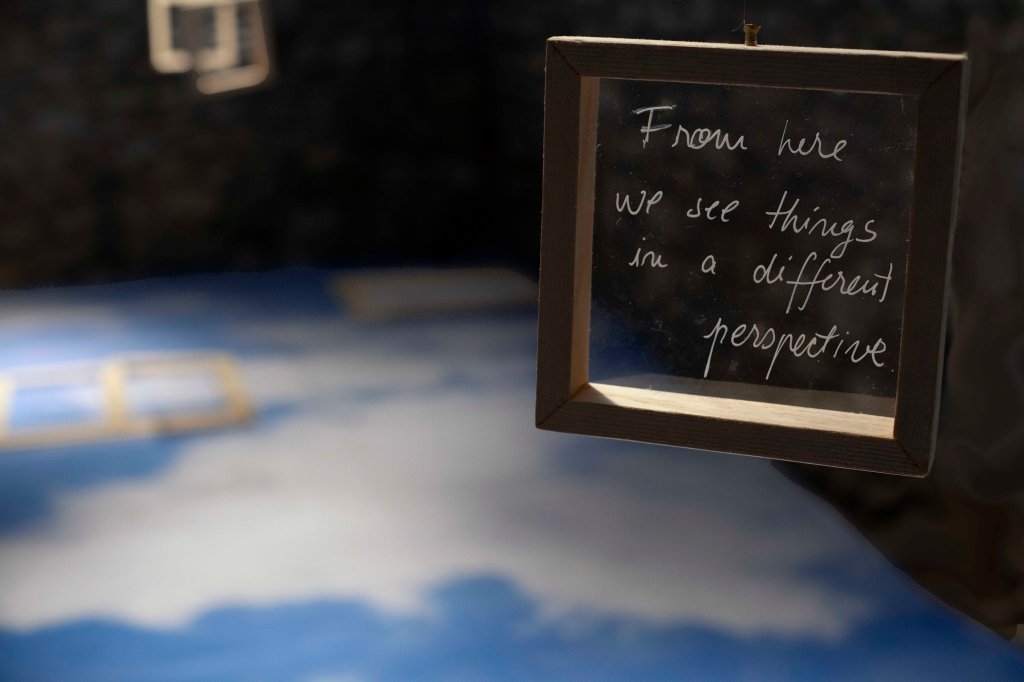 From here
we see things
in a different
perspective.